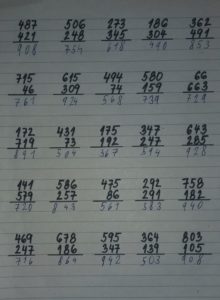 487 506 273 186 362
421 248 345 304 491
908 754 618 490 853
715 615 494 580 66
46 309 74 159 663
761 924 568 739 729
172 431 175 347 643
719 73 192 247 285
891 504 367 594 928
141 586 475 292 758
579 257 86 291 182
720 843 561 583 940
469 678 595 364 803
247 186 347 139 105
716 864 942 503 908